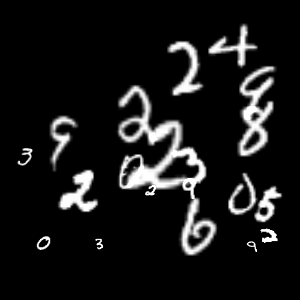 2 4
2 9
9 2 8
3 2 3
2 2 9 0 5
6
0 3 9 2